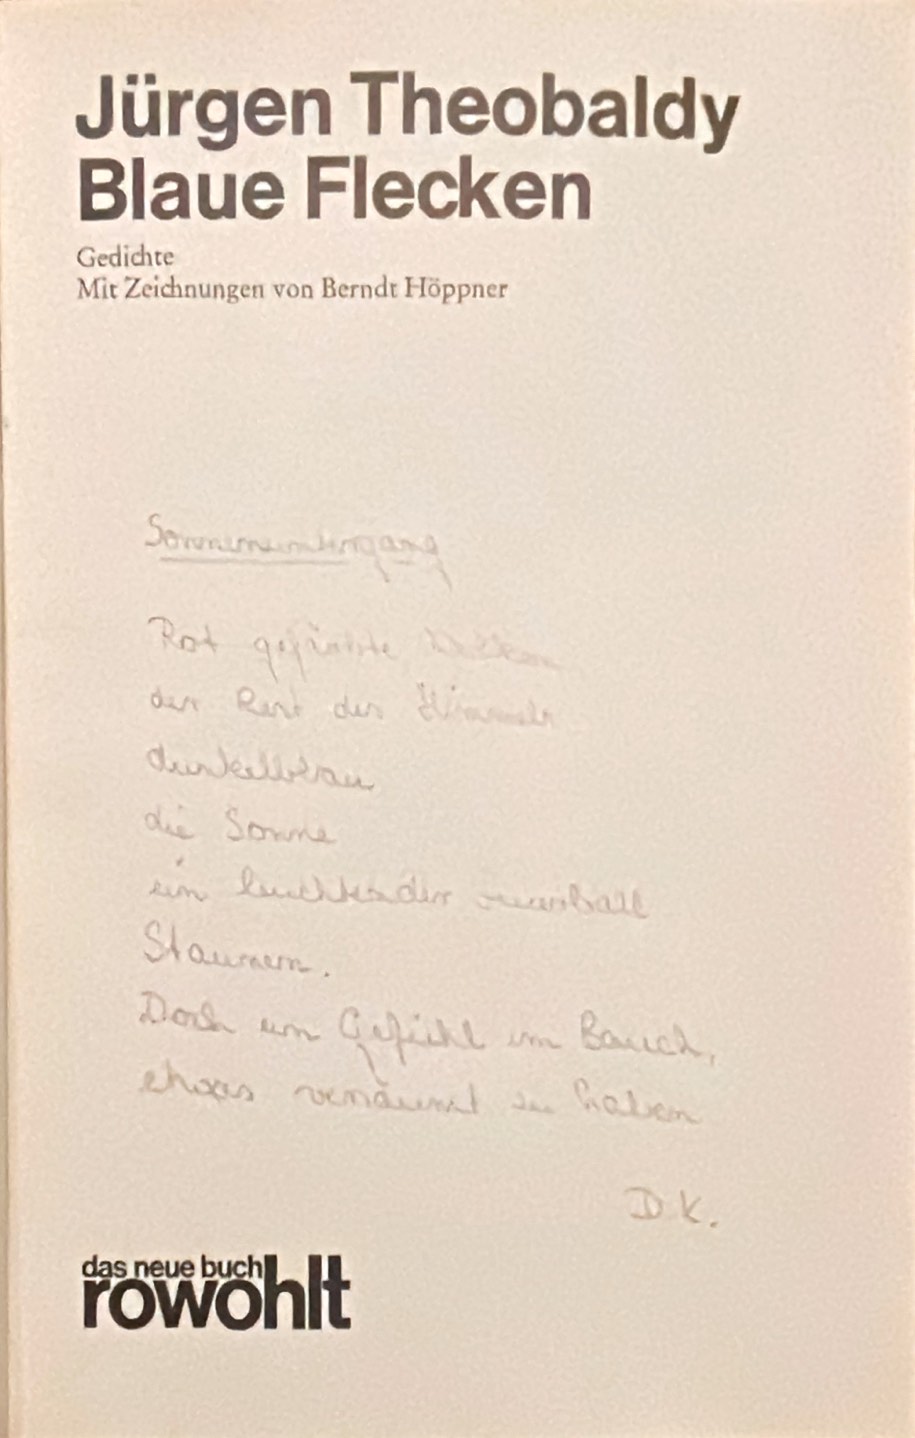 Jürgen Theobaldy
Blaue Flecken
Gedichte
Mit Zeichnungen von Berndt Höppner
Sonnenuntergang
Rot gefärbte Wolken
der Rest des Himmels
dunkelblau
die Sonne
ein leuchtender Feuerball
Staunen.
Doch ein Gefühl im Bauch,
etwas versäumt zu haben
D K.
das neue buch
rowohlt